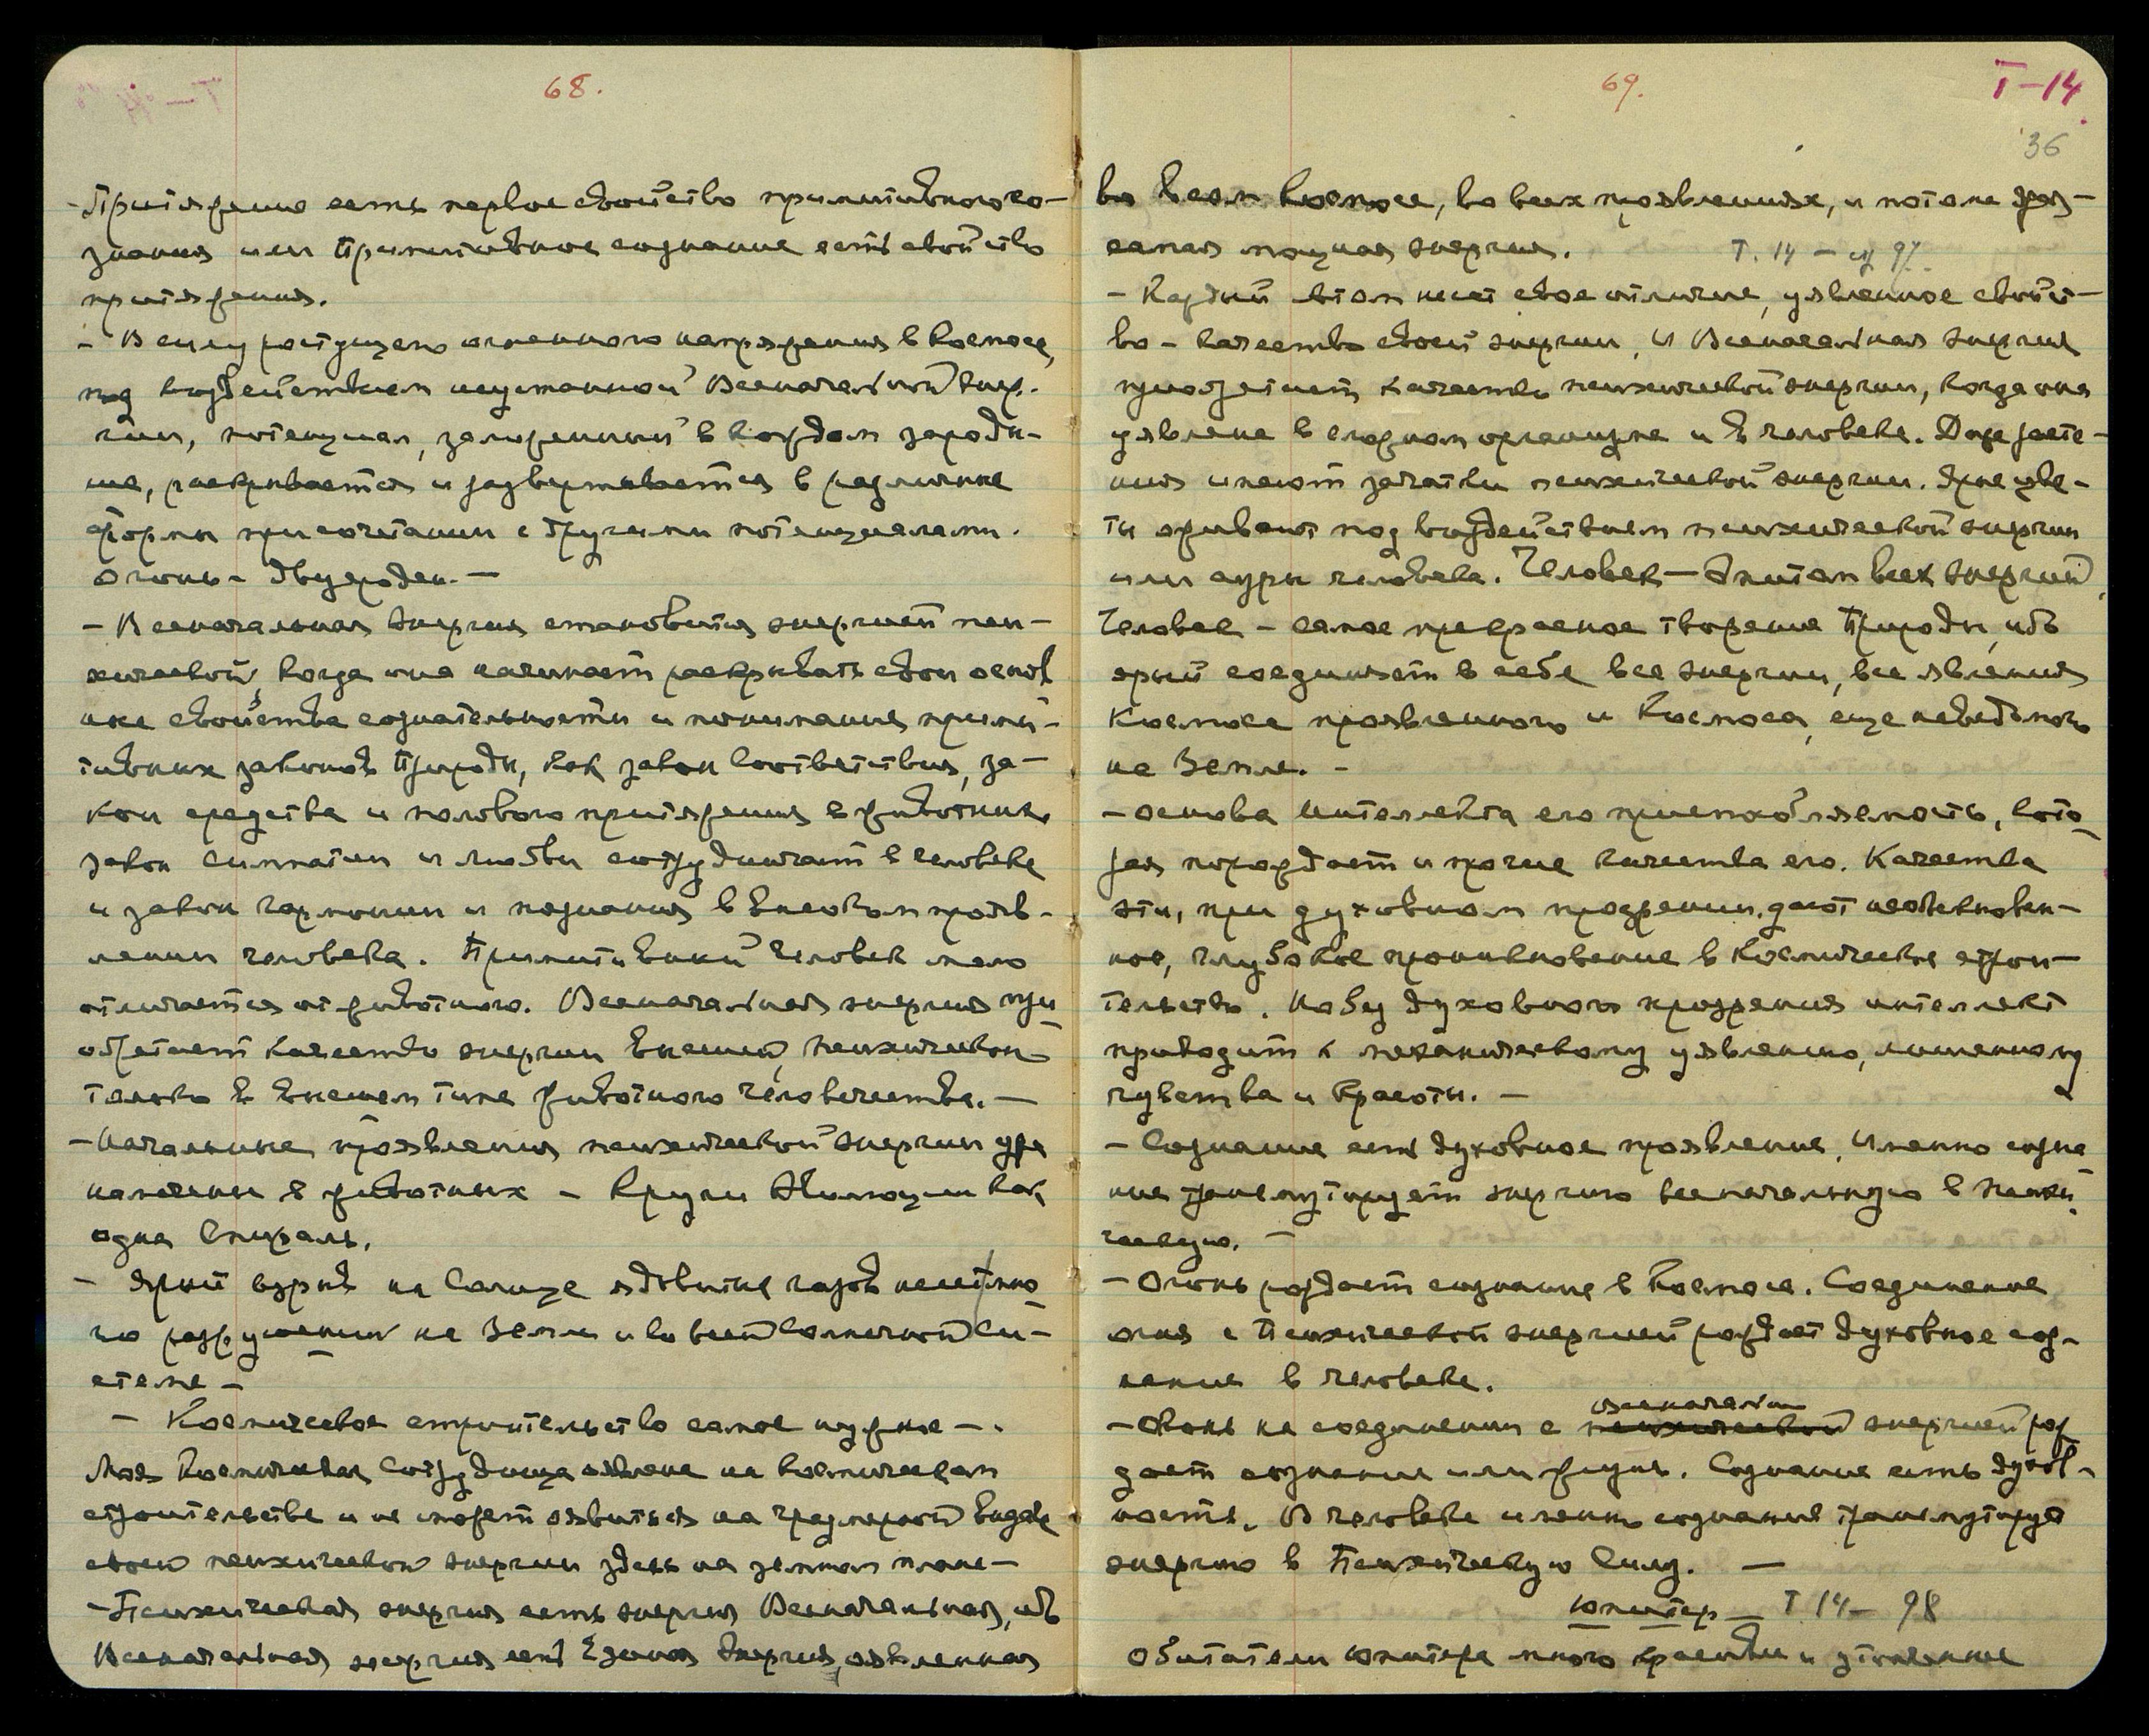 68.
- Притяжение есть первое свойство примитивного со-
знания или Примитивное сознание есть свойство
притяжения.
- В силу растущего огненного напряжения в Космосе,
под воздействием неустанной Всеначальной Энер-
гии, потенциал, заложенный в каждом зароды-
ше, раскрывается и развертывается в различные
формы при сочетании с другими потенциалами.
Огонь - двуроден. -
- Всеначальная Энергия становится энергией пси-
хической, когда она начинает раскрывать свои основ
ные свойства сознательности и понимания прими-
тивных законов Природы, как закон Соответствия, за-
кон сродства и полового притяжения в животных,
закон симпатии и любви сотрудничает в человеке
и закон гармонии и познания в высоком прояв-
лении человека. Примитивный человек мало
отличается от животного. Всеначальная энергия при
обретает качество энергии высшей, психической
только в высшем типе животного человечества. -
- Начальные проявления психической энергии уже
намечены в животных - Круги Эволюции как
одна Спираль.
- Ярый взрыв на Солнце ядовитых газов несет много
разрушений на Земле и во всей Солнечной Си-
стеме -
- Космическое строительство самое нужное -.
Моя Космическая Сотрудница явлена на космическом
строительстве и не может явиться на чрезмерной выдаче
своей психической энергии здесь на земном плане -
- Психическая энергия есть энергия Всеначальная, ибо
Всеначальная энергия есть Единая Энергия, явленная
69.
T-14
36
во всем Космосе, во всех проявлениях, и потому она
самая мощная энергия.
T. 14 - 97.
- Каждый атом несет свое отличие, уявленное свойст-
во - качество своей энергии, и Всеначальная энергия
приобретает качество психической энергии, когда она
уявлена в сложном организме и в человеке. Даже расте-
ния имеют зачатки психической энергии. Ярые цве-
ты оживают под воздействием психической энергии
или ауры человека. Человек - Эпитом всех энергий,
Человек - самое прекрасное творение Природы, ибо
ярый соединяет в себе все энергии, все явления
Космоса проявленного и Космоса, еще неведомого
на Земле. -
- Основа интеллекта его приспособляемость, кото-
рая порождает и прочие качества его. Качества
эти, при духовном прозрении, дают необыкновен-
ное, глубокое проникновение в Космическое строи-
тельство. Но без духовного прозрения интеллект
приводит к механическому уявлению, лишенному
чувства и красоты. -
- Сознание есть духовное проявление, именно созна
ние трансмутирует энергию всеначальную в психи-
ческую. -
- Огонь рождает сознание в Космосе. Соединение
огня с Психической энергией рождает духовное соз-
нание в человеке.
- Огонь на соединении с всеначальной энергией рож
дает сознание или жизнь. Сознание есть духов-
ность. В человеке именно сознание трансмутирует
энергию в Психическую Силу. -
Юпитер - T 14 - 98
Обитатели Юпитера много красивее и утонченнее